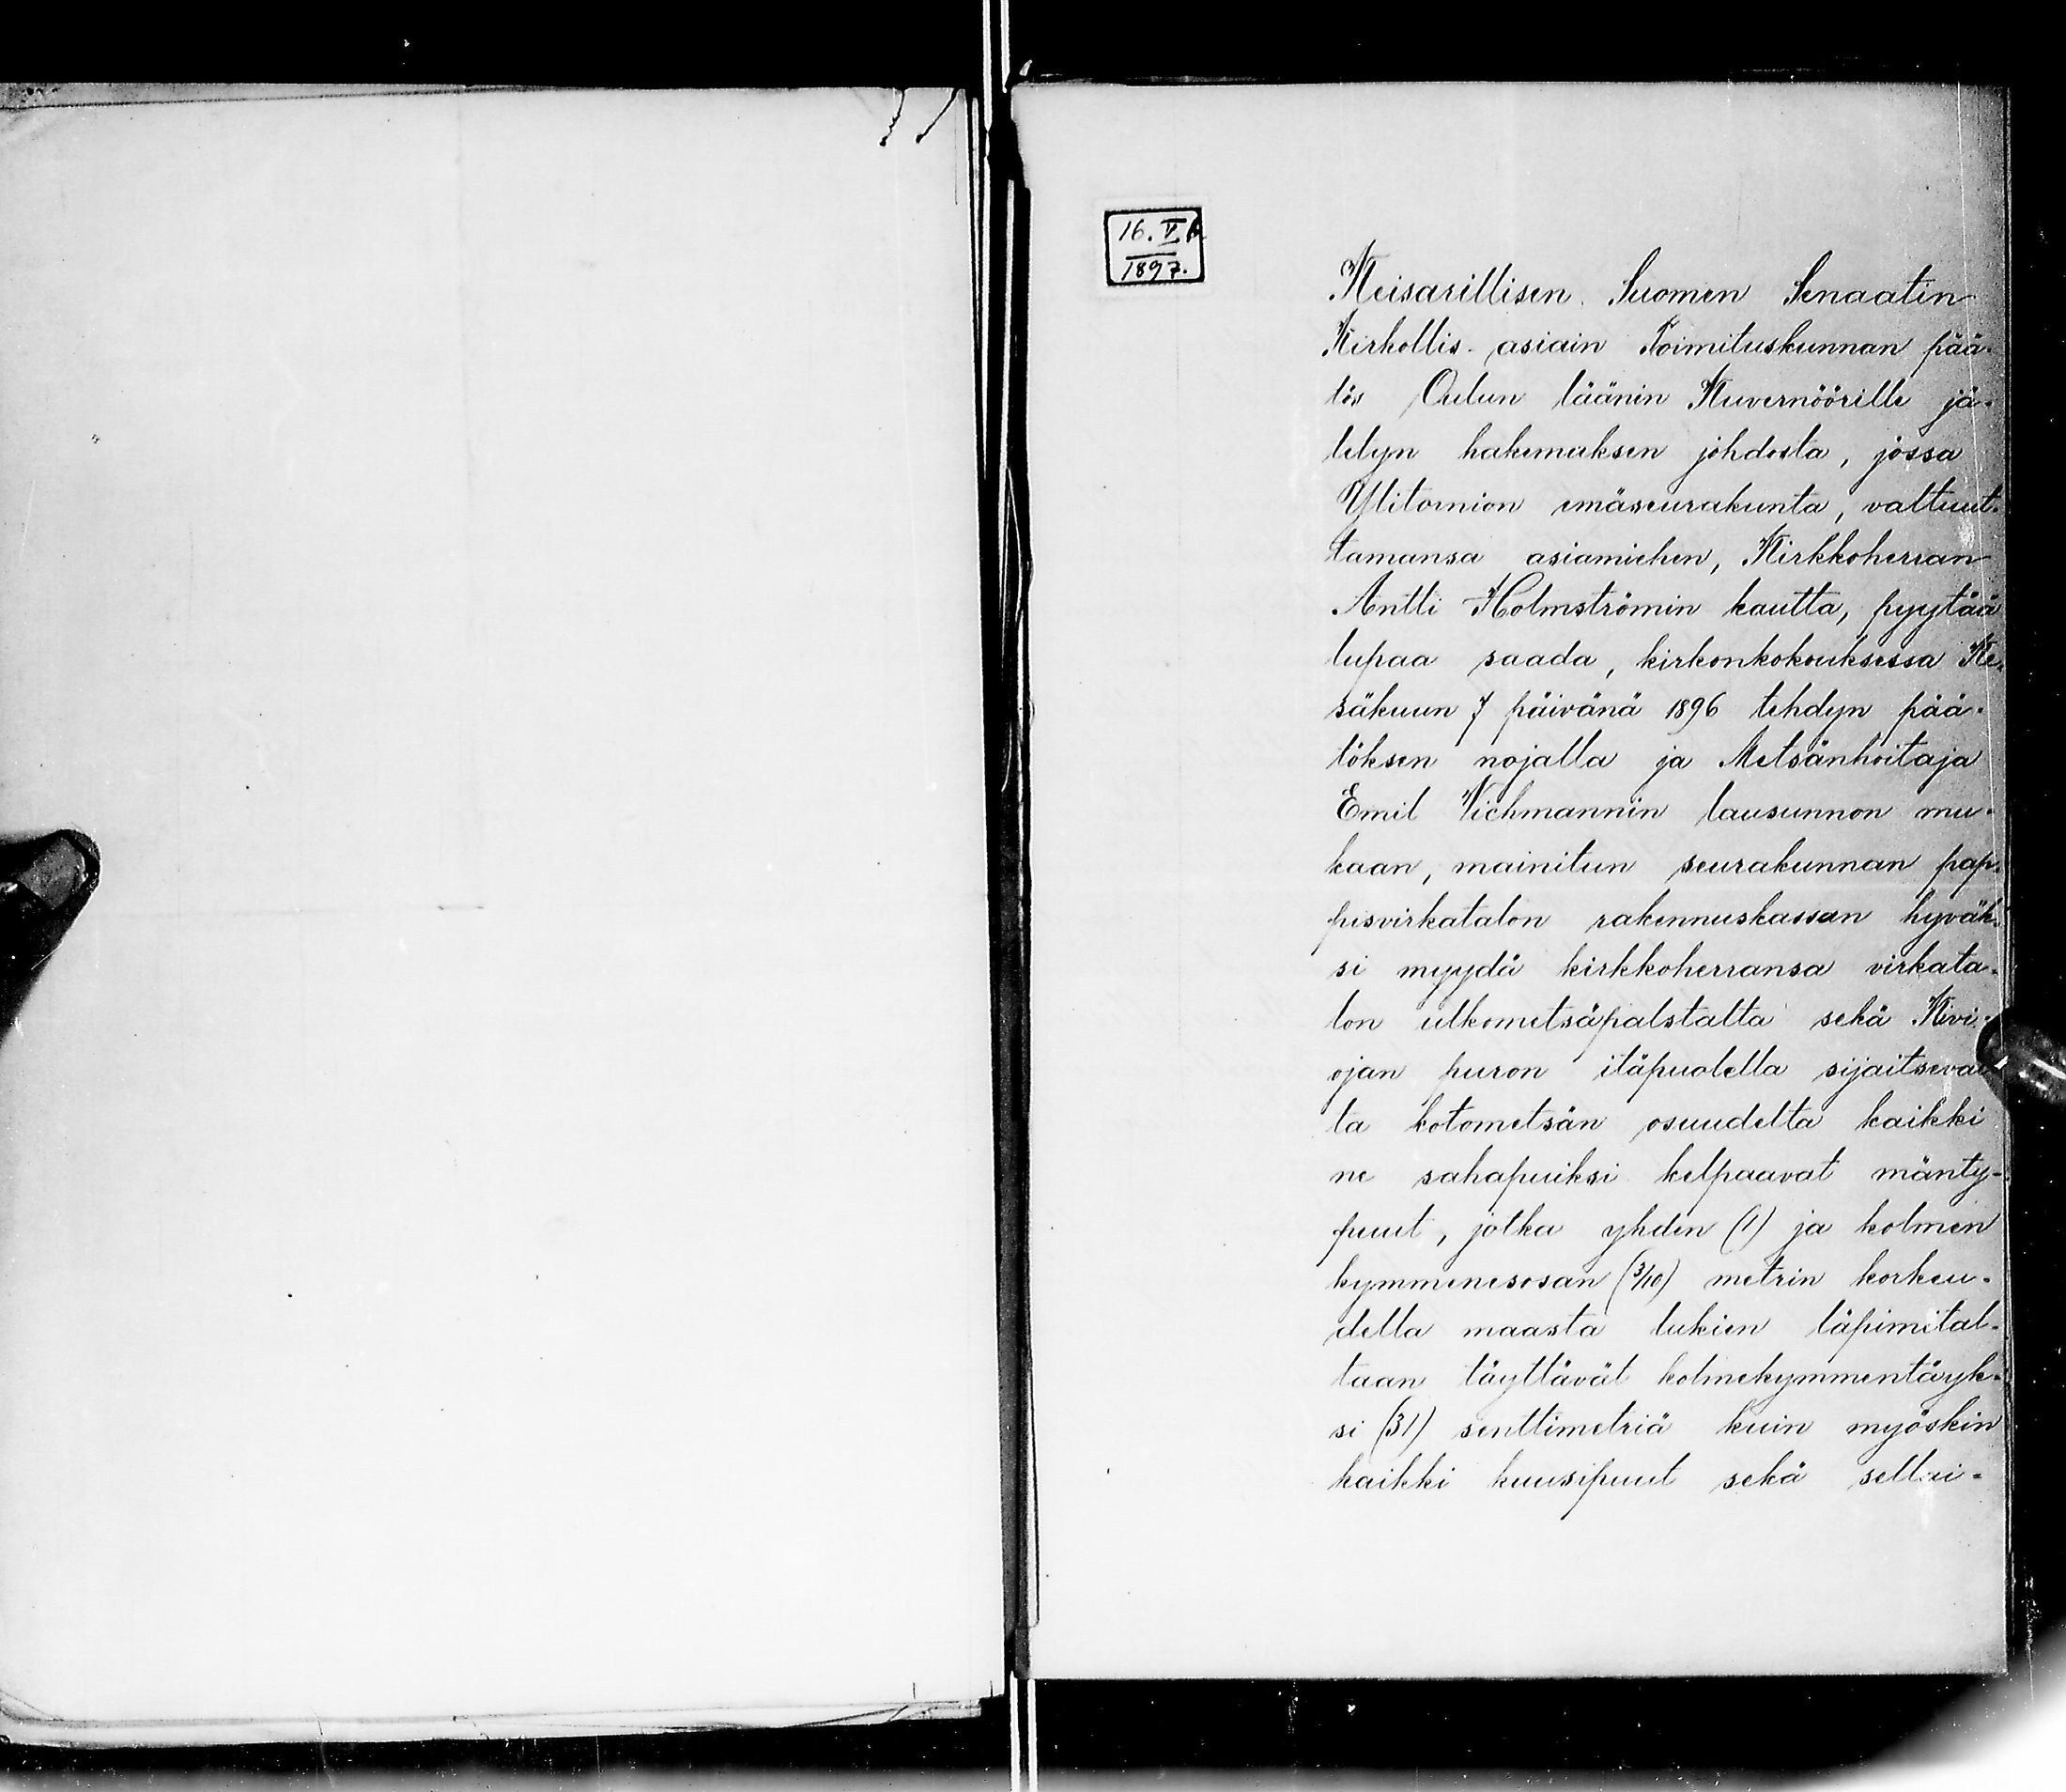 16. V
1897.
Keisarillisen Suomen Senaatin
Kirkollis-asiain Toimituskunnan pää-
tös Oulun läänin Kuvernöörille jä-
tetyn hakemuksen johdosta, jossa
Ylitornion emäseurakunta, valtuut-
tamansa asiamiehen, Kirkkoherran
Antti Holmströmin kautta, pyytää
lupaa saada, kirkonkokouksessa Ke-
säkuun 7 päivänä 1896 tehdyn pää-
töksen nojalla ja Metsänhoitaja
Emil Vichmannin lausunnon mu-
kaan, mainitun seurakunnan pap-
pisvirkatalon rakennuskassan hyväk-
si myydä kirkkoherransa virkata-
lon ulkometsäpalstalta sekä Kivi-
ojan puron itäpuolella sijaitseval-
ta kotometsän osuudelta kaikki
ne sahapuiksi kelpaavat mänty-
puut, jotka yhden (1) ja kolmen
kymmenesosan (3/10) metrin korkeu-
della maasta lukien läpimital-
taan täyttävät kolmekymmentäyk-
si (31) senttimetriä kuin myöskin
kaikki kuusipuut sekä sellai-